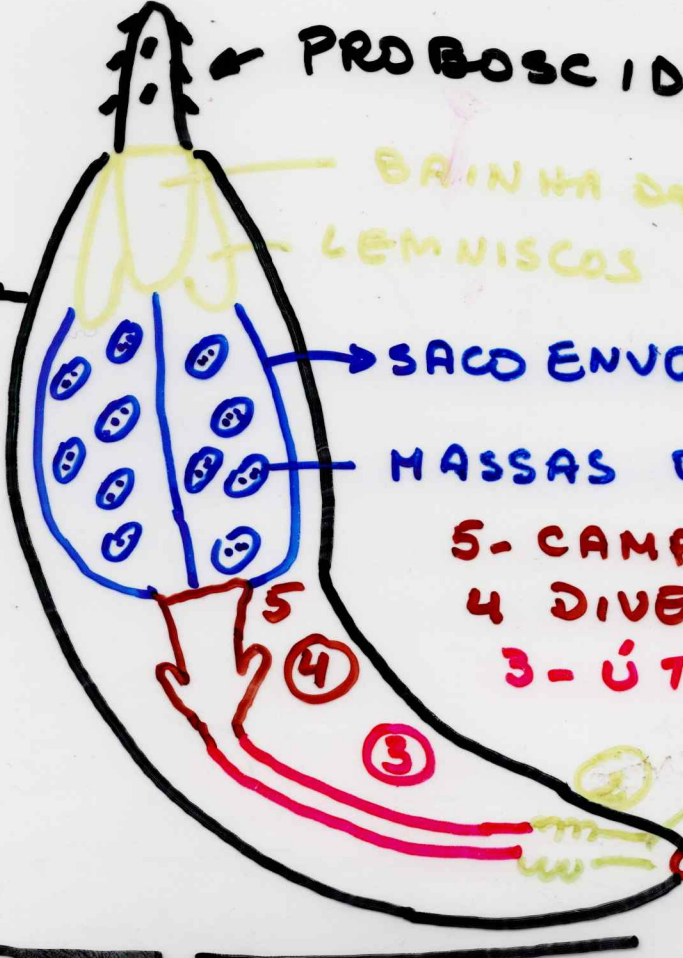 PROBOSCID
BAINHA DA
LEMNISCOS
SACO ENVO
MASSAS
5- CAMB
4 DIVE
3- ÚT
5
4
3